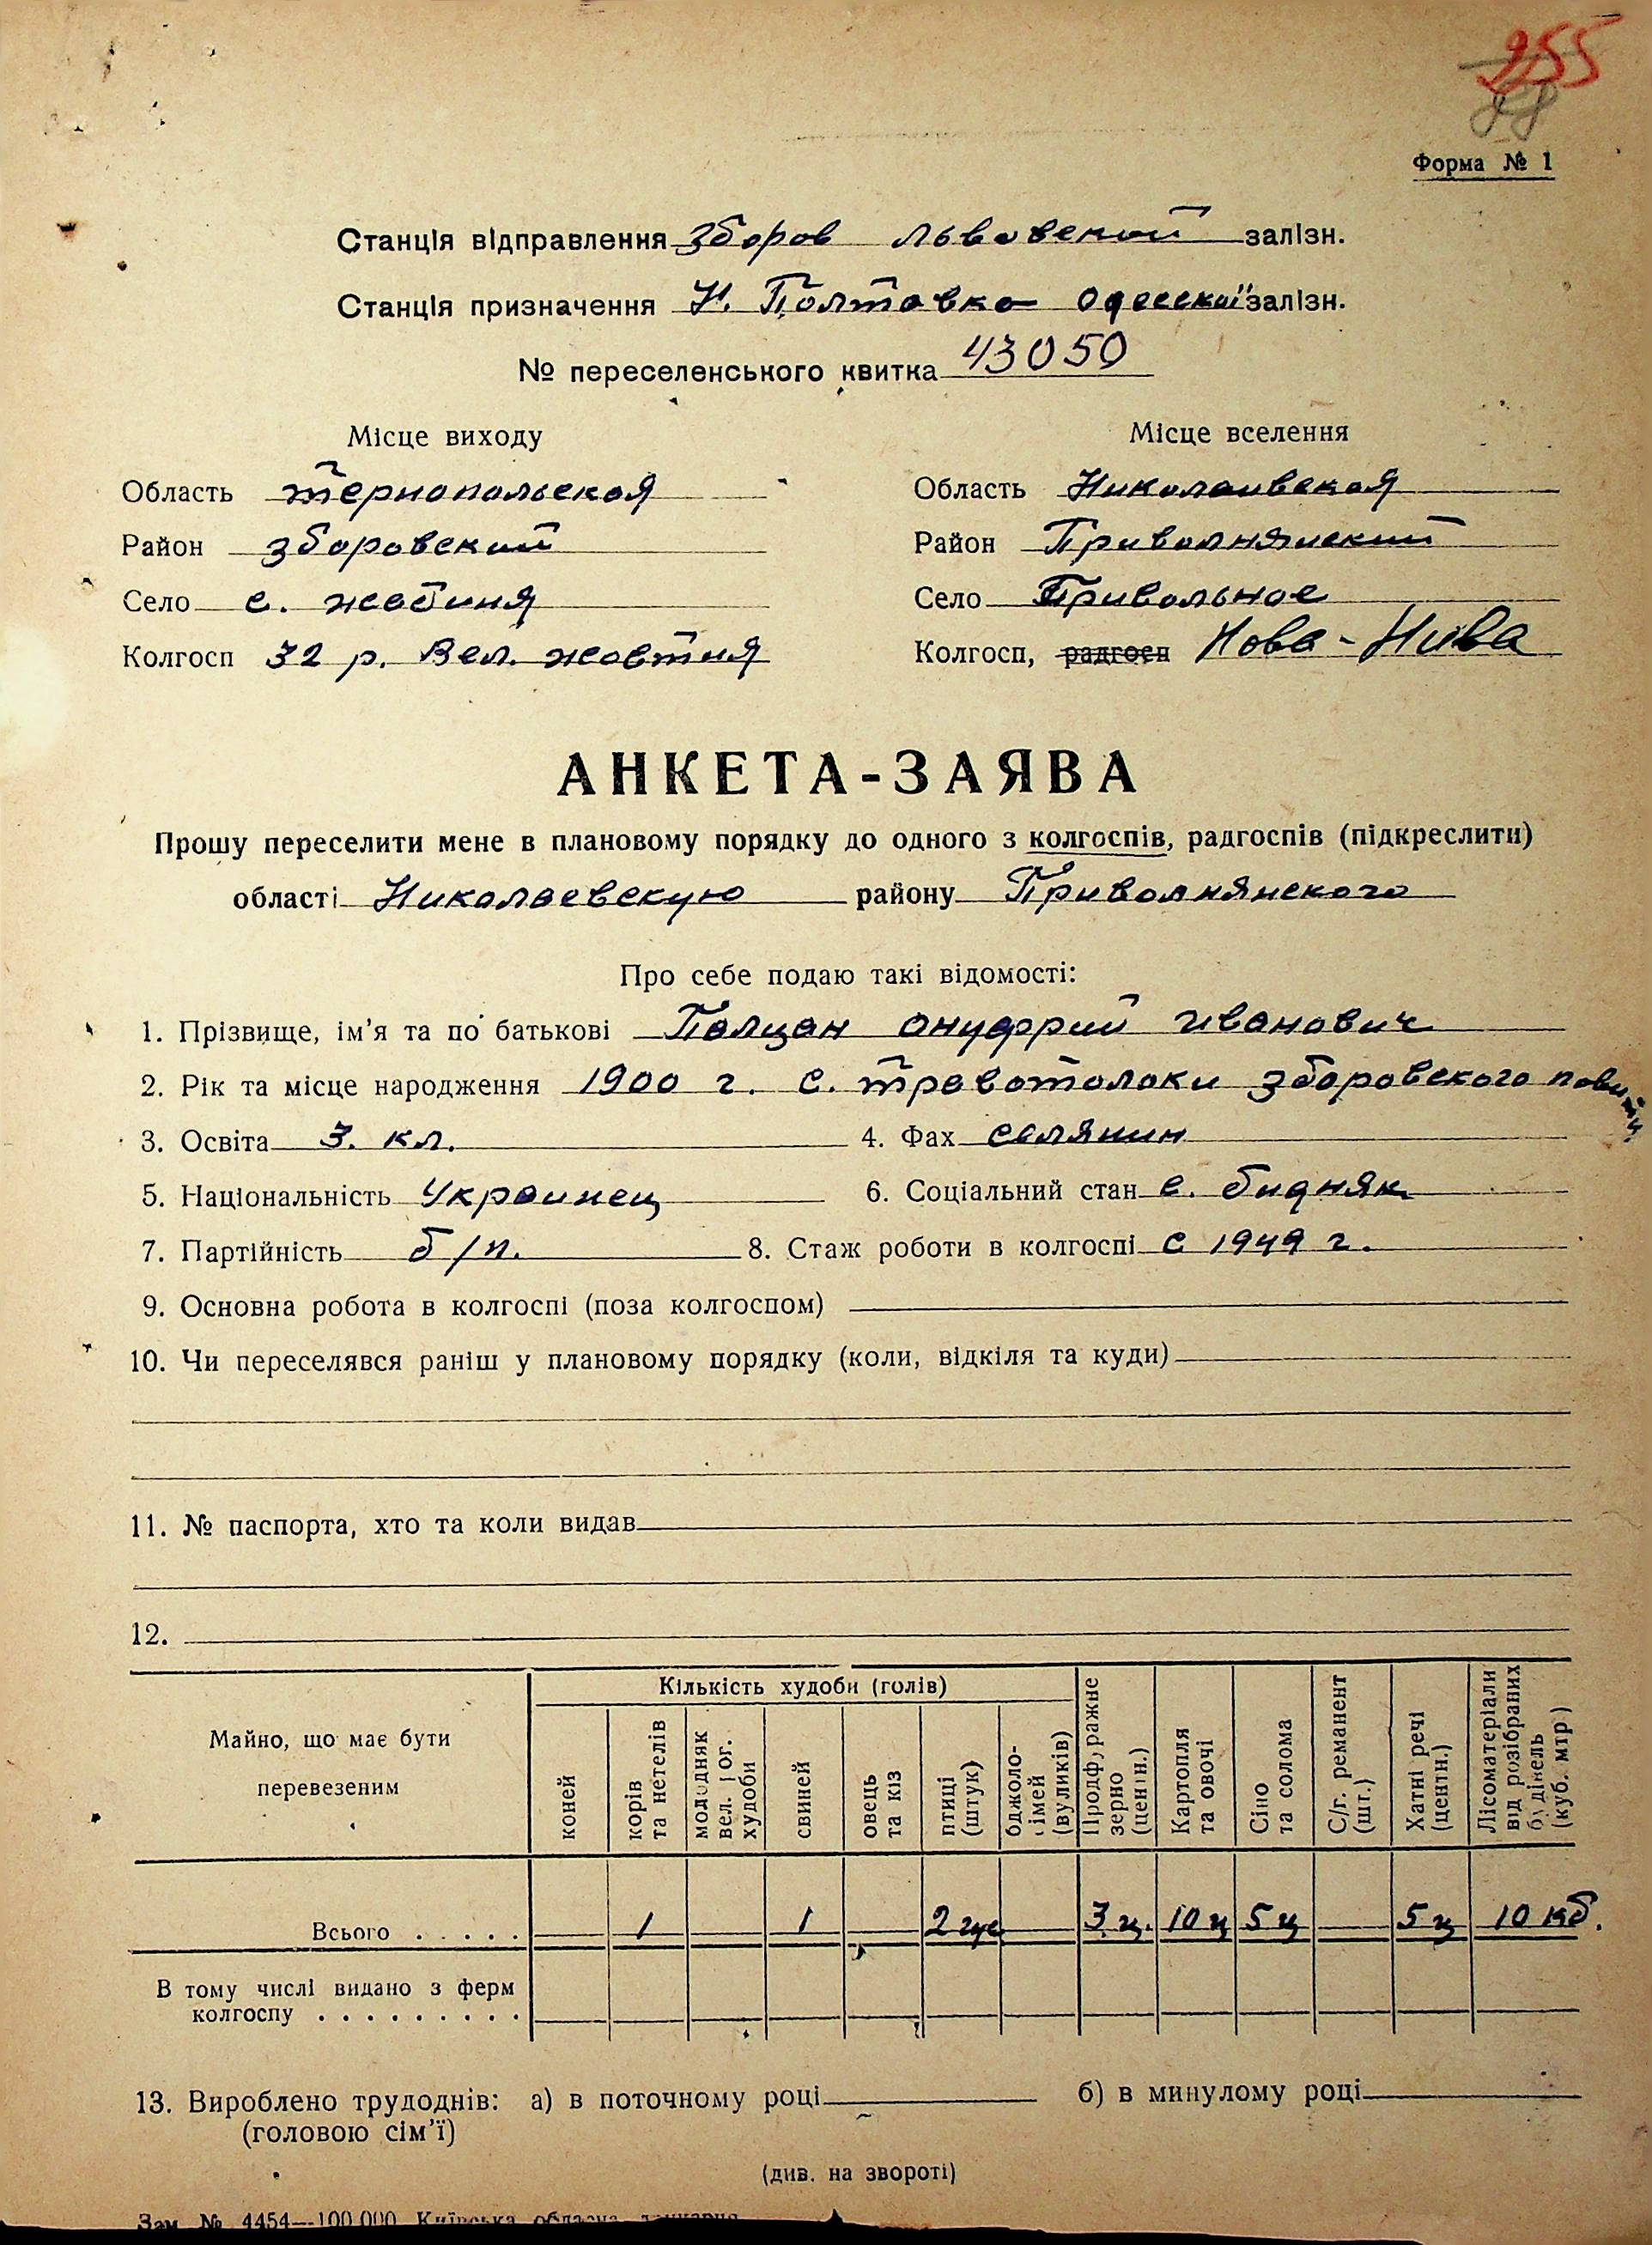 255
Форма № 1
Станція відправлення Зборов Львовской залізн.
Станція призначення Н. Полтавка Одесской залізн.
№ переселенського квитка 43050
Місце виходу
Місце вселення
Область Тернопольская
Область Николаивская
Район Зборовский
Район Привольнянский
Село с.
Село Привольное
Колгосп 32 р. Вел. жовтня
Колгосп, радгосп Нова-Нива
АНКЕТА-ЗАЯВА
Прошу переселити мене в плановому порядку до одного з колгоспів, радгоспів (підкреслити)
області Николаевскую району Приволнянского
Про себе подаю такі відомості:
1. Прізвище, ім'я та по батькові Палцан Онуфрий Иванович
2. Рік та місце народження 1900 г. с. Травотолоки Зборовского
3. Освіта 3. кл. 4. Фах селянин
5. Національність Украинец 6. Соціальний стан с. бидняк
7. Партійність б/п. 8. Стаж роботи в колгоспі с 1949 г.
9. Основна робота в колгоспі (поза колгоспом)
10. Чи переселявся раніш у плановому порядку (коли, відкіля та куди)
11. № паспорта, хто та коли видав
12.
Майно, що має бути перевезеним
Кількість худоби (голів)
коней
корів та нетелів
молодняк вел. рог. худоби
свиней
овець та кіз
птиці (штук)
бджоло-сімей (вуликів)
Продфуражне зерно (центн.)
Картопля та овочі
Сіно та солома
С/г. реманент (шт.)
Хатні речі (центн.)
Лісоматеріали від розібраних будівель (куб. мтр)
Всього . . . . . 1 1 2 3 ц. 10 ц 5 ц 5 ц 10 кб.
В тому числі видано з ферм
колгоспу . . . . . . . . .
13. Вироблено трудоднів: а) в поточному році б) в минулому році
(головою сім'ї)
(див. на звороті)
Зам. № 4454—100.000 Київська обласна друкарня